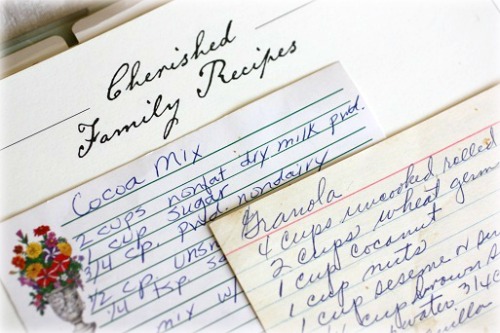 Cherished
Family Recipes
Cocoa Mix
2 cups nonfat dry milk pwd.
1 cup sugar
3/4 cp. pwd. nondairy
1/2 cp. uns
1/4 tsp sa
mix w/
Granola
4 cups uncooked rolled
2 cups wheat germ
1 cup coconut
1 cup nuts
1 cup sesame
cup brown s
water 3/4